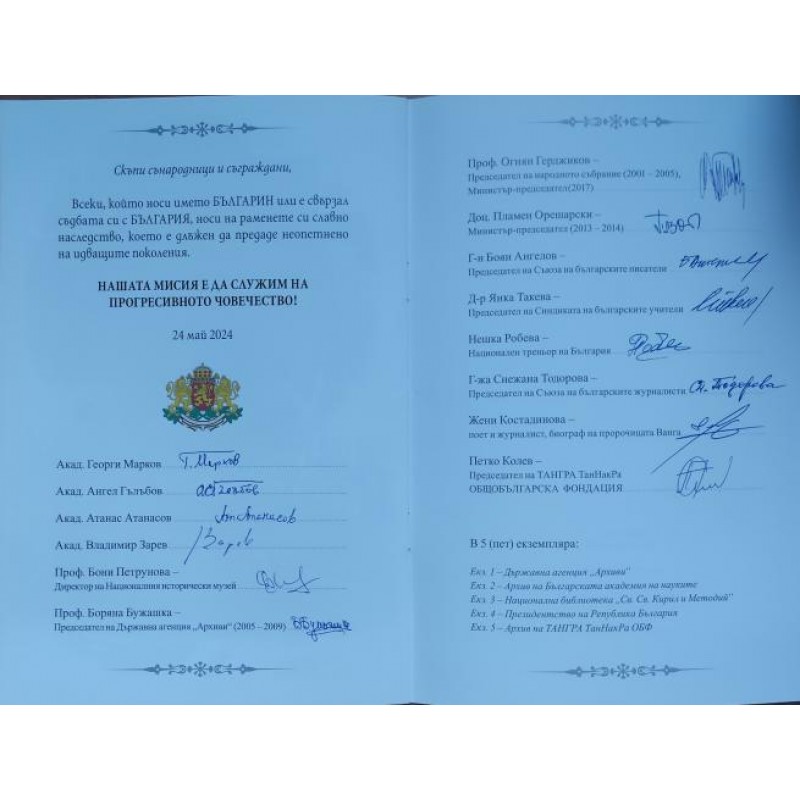 Скъпи сънародници и съграждани,
Всеки, който носи името БЪЛГАРИН или е свързал
съдбата си с БЪЛГАРИЯ, носи на раменете си славно
наследство, което е длъжен да предаде неопетнено
на идващите поколения.
НАШАТА МИСИЯ Е ДА СЛУЖИМ НА
ПРОГРЕСИВНОТО ЧОВЕЧЕСТВО!
24 май 2024
Акад. Георги Марков Г. Марков
Акад. Ангел Гълъбов
Акад. Атанас Атанасов Ат. Атанасов
Акад. Владимир Зарев Зарев
Проф. Бони Петрунова –
Директор на Националния исторически музей
Проф. Боряна Бужашка –
Председател на Държавна агенция „Архиви“ (2005 – 2009)
Проф. Огнян Герджиков –
Председател на народното събрание (2001 – 2005),
Министър-председател(2017)
Доц. Пламен Орешарски –
Министър-председател (2013 – 2014)
Г-н Боян Ангелов –
Председател на Съюза на българските писатели
Д-р Янка Такева –
Председател на Синдиката на българските учители
Нешка Робева –
Национален треньор на България
Г-жа Снежана Тодорова –
Председател на Съюза на българските журналисти Сн. Тодорова
Жени Костадинова –
поет и журналист, биограф на пророчицата Ванга
Петко Колев –
Председател на ТАНГРА ТанНакРа
ОБЩОБЪЛГАРСКА ФОНДАЦИЯ
В 5 (пет) екземпляра:
Екз. 1 – Държавна агенция „Архиви“
Екз. 2 – Архив на Българската академия на науките
Екз. 3 – Национална библиотека „Св. Св. Кирил и Методий“
Екз. 4 – Президентство на Република България
Екз. 5 – Архив на ТАНГРА ТанНакРа ОБФ